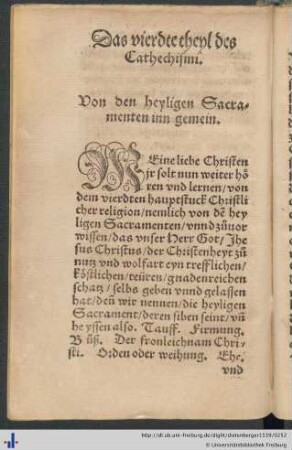 Das vierdte theyl des
Cathechismi.
Von den heyligen Sacra-
menten inn gemein.
MEine liebe Christen
jr solt nun weiter hö
ren vnd lernen/ von
dem vierdten hauptstuck Christli
cher religion/ nemlich von dē hey
ligen Sacramenten/ vnnd zůuor
wissen/ das vnser Herr Got/ Jhe
sus Christus/ der Christenheyt zů
nutz vnd wolfart eyn trefflichen/
köstlichen/ teüren/ gnadenreichen
schatz/ selbs geben vnnd gelassen
hat/ deñ wir nennen/ die heyligen
Sacrament/ deren siben seint/ vñ
heyssen also. Tauff. Firmung.
Bůß. Der fronleichnam Chri-
sti. Orden oder weihung. Ehe.
vnd
http://dl.ub.uni-freiburg.de/diglit/dietenberger1539/0252
© Universitätsbibliothek Freiburg